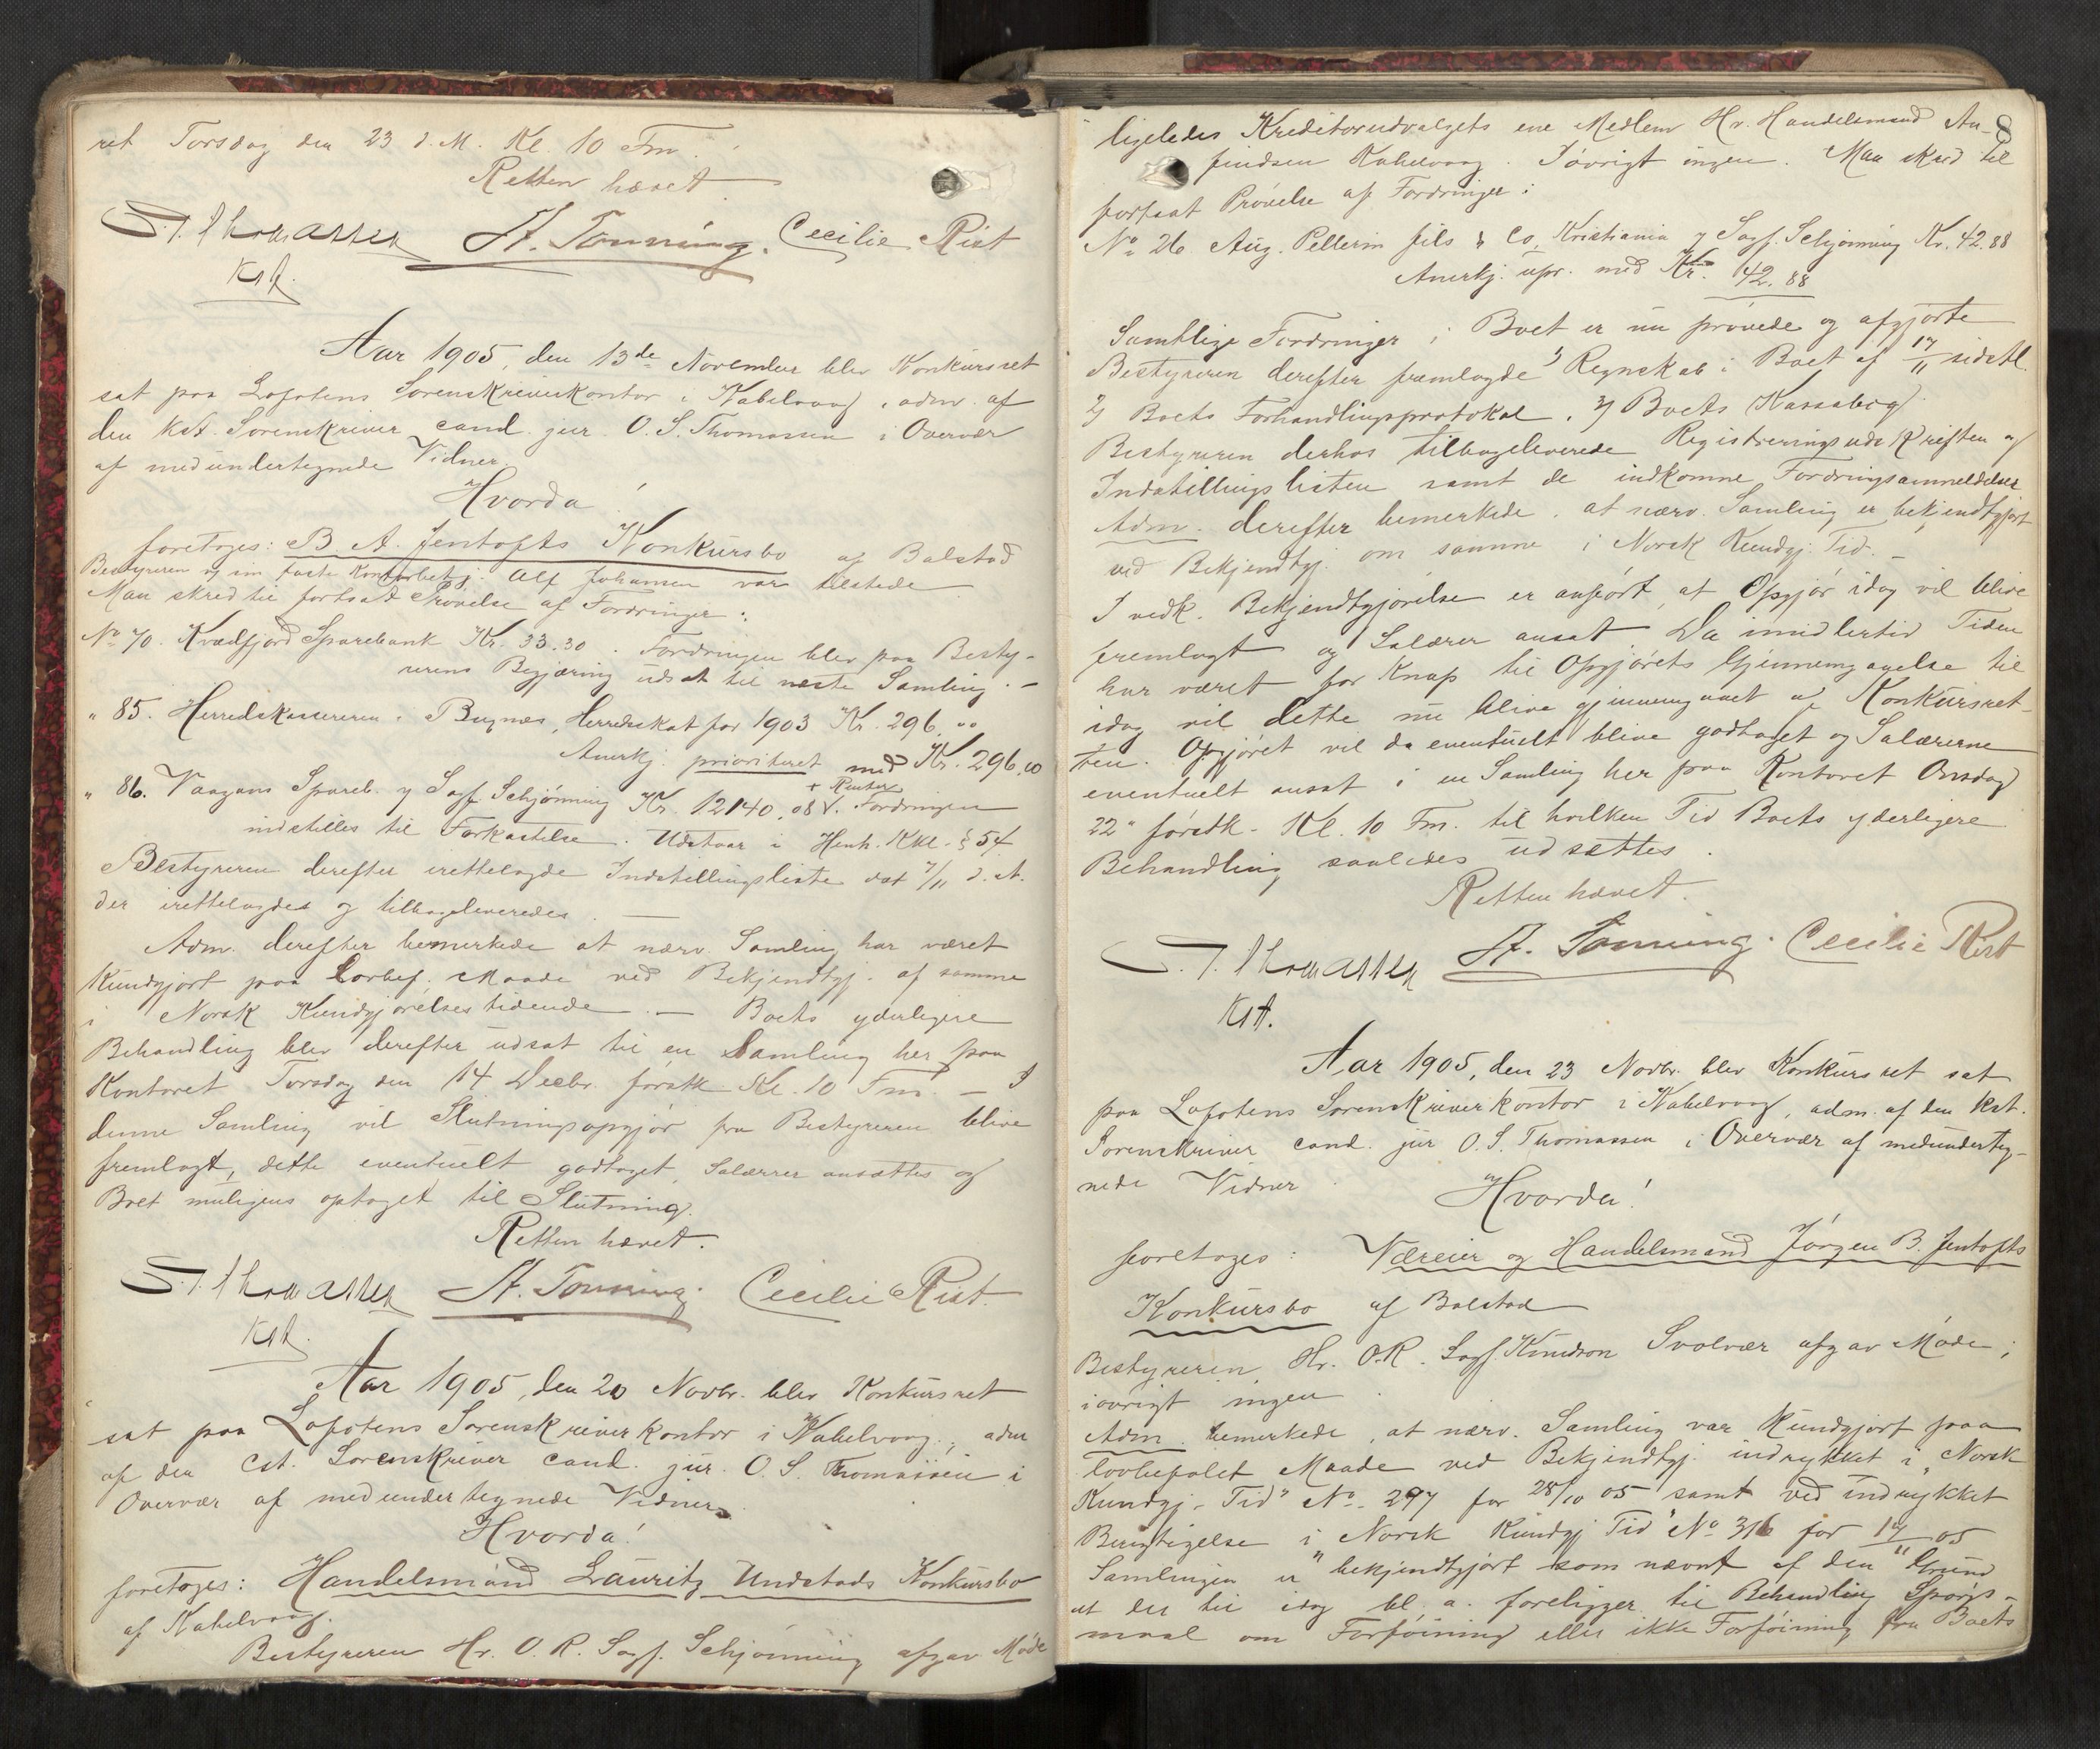 ret Torsdag den 23 d. M. Kl. 10 Fm.
Retten hævet
O. S. Thomassen A. Tønning. Cecilie Rist
Kst.
Aar 1905, den 13de November blev Konkursret
sat paa Lofotens Sorenskriverkontor i Kabelvaag, adm. af
den Kst. Sorenskriver cand. jur. O. S. Thomassen i Overvær
af medundertegnede Vidner.
Hvorda!
foretoges: B. A. Jentofts Konkursbo af Balstad
Bestyreren og sin faste Kontorbetj. Alf Johansen var tilstede
Man skred til fortsat Prøvelse af Fordringer:
No 70. Kvædfjord Sparebank Kr. 33.30. Fordringen blev paa Besty-
rerens Begjæring udsat til næste Samling. -
" 85. Herredskassereren i Buxnes, Herredsskat for 1903 Kr. 296.00
Anerkj. prioriteret med Kr. 296.00
" 86. Vaagans Spareb. v/ Sagf. Schjønning Kr. 12140.08 + Renter. Fordringen
indstilles til Forkastelse. Udstaar i Henh. Kkl. § 54
Bestyreren derefter irettelagde Indstillingsliste dat 7/11 d. A.
der irettelagdes og tilbageleveredes. —
Adm. derefter bemerkede at nærv. Samling har været
Kundgjort paa Lovbef. Maade ved Bekjendtgj. af samme
i Norsk Kundgjørelsestidende. — Boets yderligere
Behandling blev derefter udsat til en Samling her paa
Kontoret Torsdag den 14 Decbr. førstk. Kl. 10 Fm. — I
denne Samling vil Slutningsopgjør fra Bestyreren blive
fremlagt, dette eventuelt godtaget, Salærer ansættes og
Boet muligens optaget til Slutning.
Retten hævet.
O. S. Thomassen A. Tønning. Cecilie Rist.
Kst.
Aar 1905, den 20 Novbr. blev Konkursret
sat paa Lofotens Sorenskriverkontor i Kabelvaag, adm
af den Cst. Sorenskriver cand. jur. O. S. Thomassen i
Overvær af medundertegnede Vidner
Hvorda!
foretoges: Handelsmand Lauritz Undstads Konkursbo
af Kabelvaag.
Bestyreren Hr. O. R. Sagf. Schjønning afgav Møde
8
ligeledes Kreditorudvalgets ene Medlem Hr. Handelsmand
Kabelvaag. Iøvrigt ingen. Man skred til
fortsat Prøvelse af Fordringer:
No 26. Aug. Pellerin fils & Co, Kristiania v/ Sagf. Schjønning Kr. 42.88
Anerkj. upr. med Kr. 42.88
Samtlige Fordringer i Boet er nu prøvede og afgjorte
Bestyreren derefter fremlagde 1) Regnskab i Boet af 17/11 sidstl.
2) Boets Forhandlingsprotokol, 3) Boets Kassabog.
Bestyreren derhos tilbageleverede Registreringsudskriften og
Indstillingslisten samt de indkomne Fordringsanmeldelser
Adm. derefter bemerkede, at nærv. Samling er bekjendtgjort
ved Bekjendtgj. om samme i Norsk Kundgj. Tid. —
I vedk. Bekjendtgjørelse er anført, at Opgjør idag vil blive
fremlagt og Salærer ansat. Da imidlertid Tiden
har været for Knap til Opgjørets Gjennemgaaelse til
idag vil dette nu blive gjennemgaaet af Konkursret-
ten. Opgjøret vil da eventuelt blive godtaget og Salærerne
eventuelt ansat i en Samling her paa Kontoret Onsdag
22" førstk. Kl. 10 Fm. til hvilken Tid Boets yderligere
Behandling saaledes udsættes.
Retten hævet.
O. S. Thomassen A. Tønning. Cecilie Rist
Kst.
Aar 1905, den 23 Novbr. blev Konkursret sat
paa Lofotens Sorenskriverkontor i Kabelvaag, adm. af den Kst.
Sorenskriver cand. jur O. S. Thomassen i Overvær af medunderteg-
nede Vidner.
Hvorda!
foretoges: Væreier og Handelsmand Jørgen B. Jentofts
Konkursbo af Balstad
Bestyreren, Hr. O.R. Sagf. Knudson Svolvær afgav Møde;
iøvrigt ingen.
Adm. bemerkede, at nærv. Samling var Kundgjort paa
lovbefalet Maade ved Bekjendtgj. indrykket i "Norsk
Kundgj. Tid" No. 297 for 28/10 05 samt ved indrykket
i "Norsk Kundgj Tid" No 316 for 17/11 05
Samlingen er bekjendtgjort som nævnt af den Grund
at der til idag bl. a. foreligger til Behandling Spørgs-
maal om Forføining eller ikke Forføining fra Boets